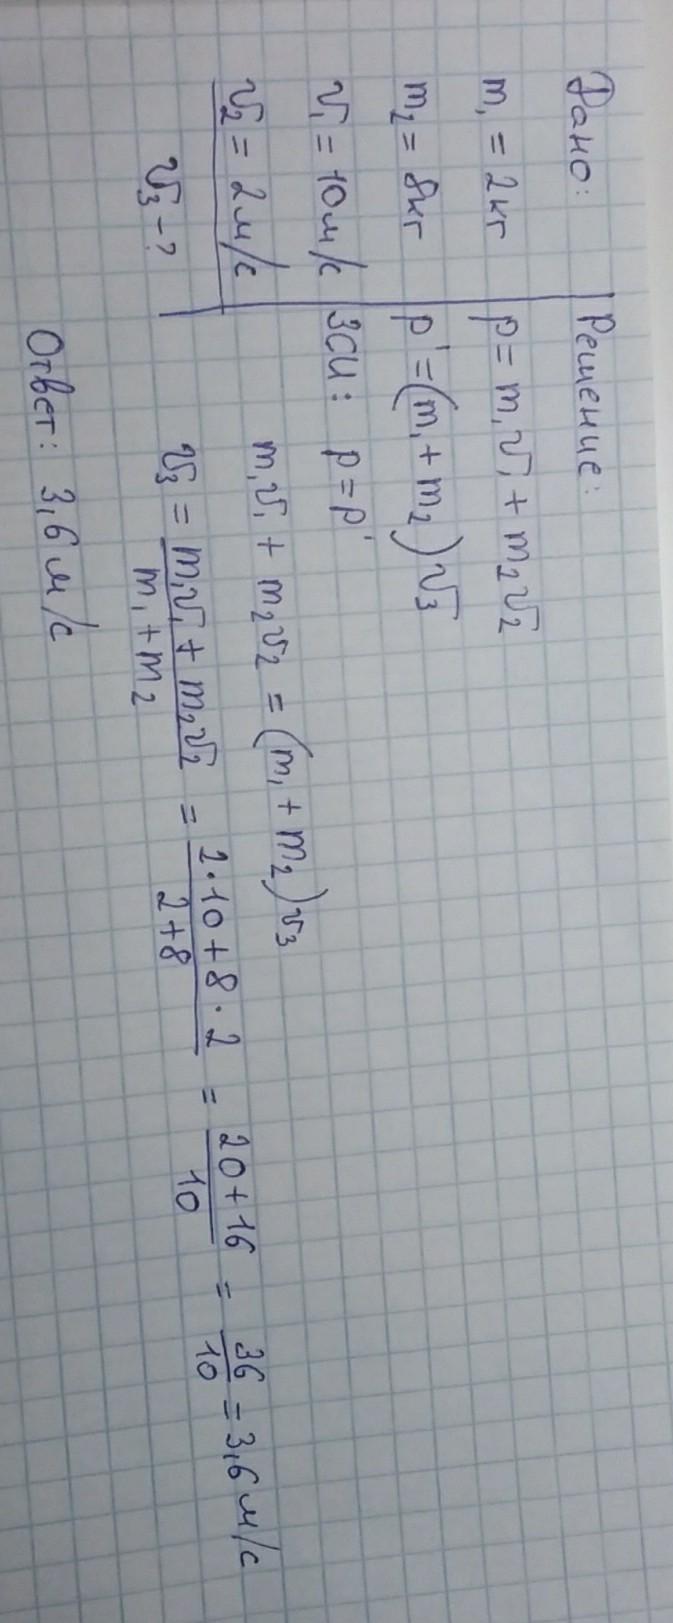 Дано:
m₁ = 2кг
m₂ = 8кг
v₁ = 10м/с
v₂ = 2м/с
v₃ - ?
Решение:
p = m₁v₁ + m₂v₂
p' = (m₁ + m₂)v₃
ЗСИ: p = p'
m₁v₁ + m₂v₂ = (m₁ + m₂)v₃
v₃ = (m₁v₁ + m₂v₂)/(m₁ + m₂) = (2·10 + 8·2)/(2+8) = (20+16)/10 = 36/10 = 3,6м/с
Ответ: 3,6м/с